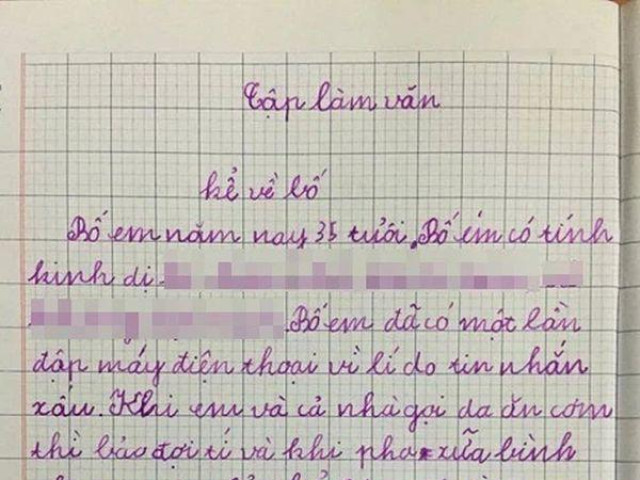 Tập làm văn
kể về bố
Bố em năm nay 35 tuổi. Bố em có tính
kinh dị.
Bố em đã có một lần
đập máy điện thoại vì lí do tin nhắn
xấu. Khi em và cả nhà gọi da ăn cơm
thì bảo đợi tí và khi pha xữa bình